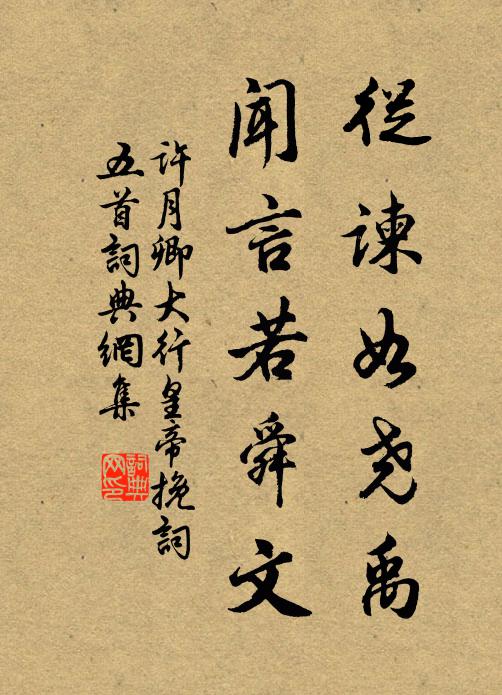 從諫如尧禹
闻言若舜文
許月卿大行皇帝挽詞
五首詞典網集
詞典
网印